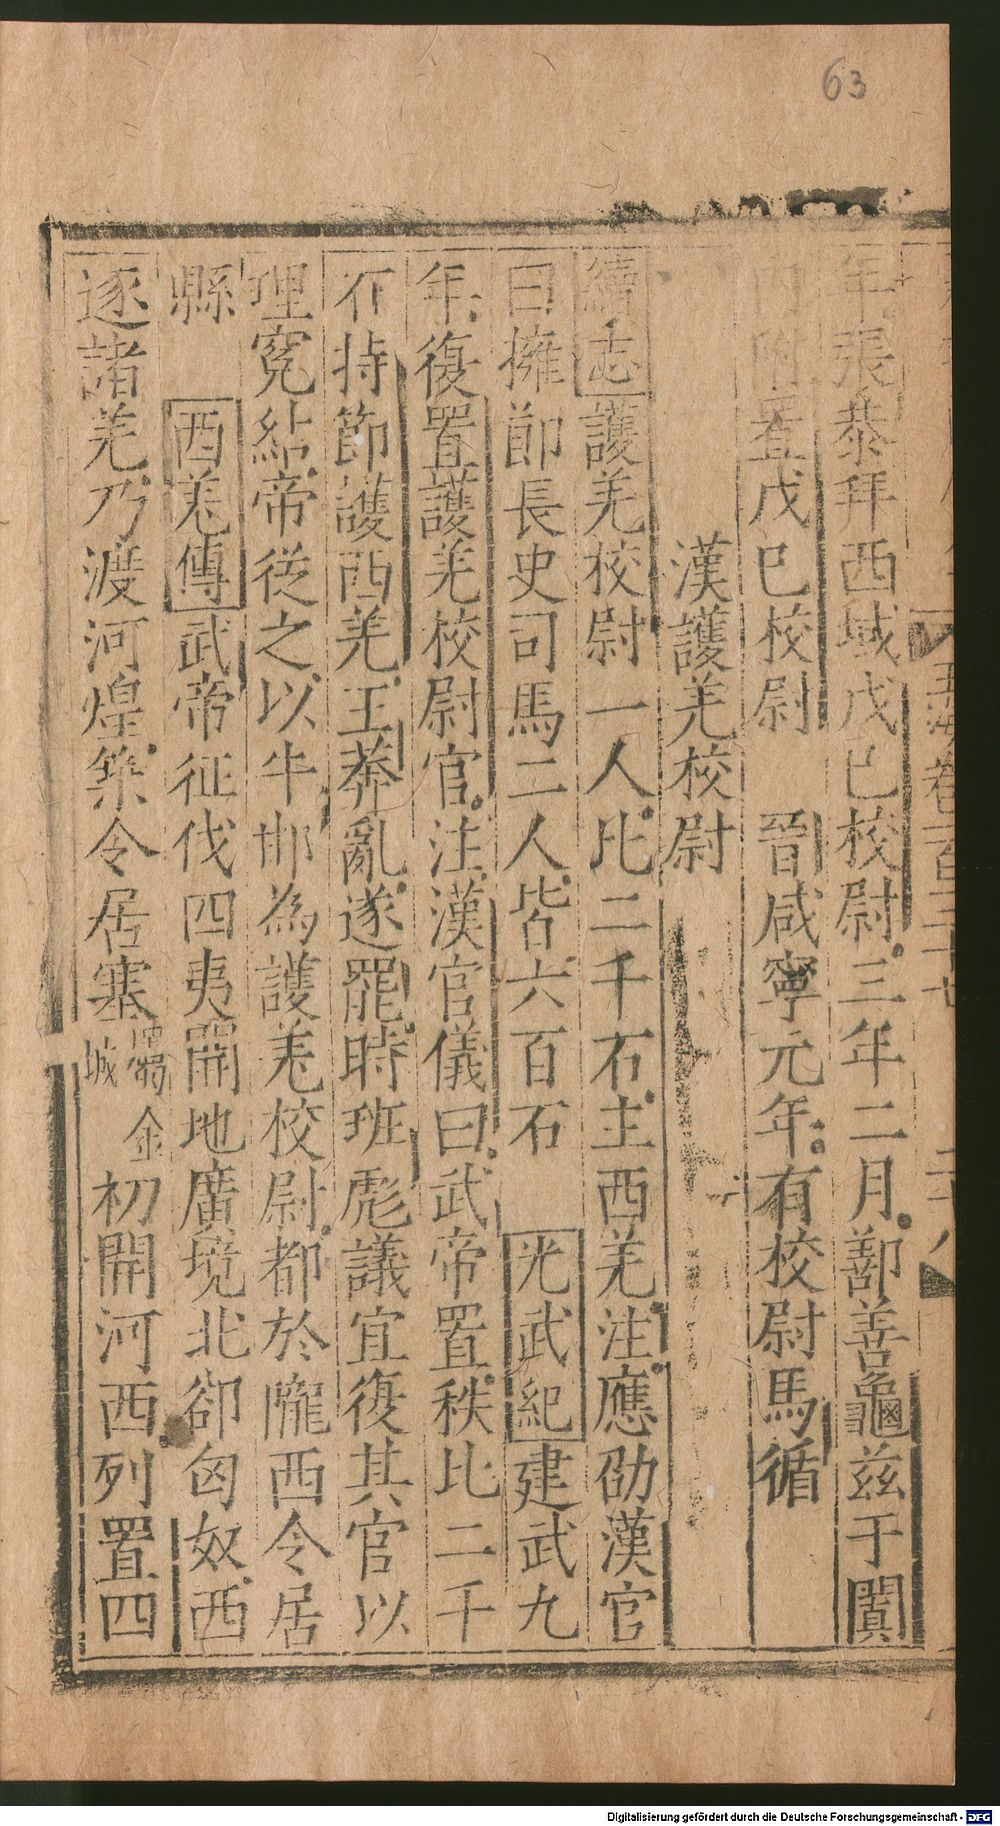 63
年張恭拜西域戊巳校尉三年二月鄯善龜兹于闐
內附置戊巳校尉　晉咸寧元年有校尉馬循
漢護羌校尉
續志護羌校尉一人比二千石主西羌注應劭漢官
曰擁節長史司馬二人皆六百石　光武紀建武九
年復置護羌校尉官注漢官儀曰武帝置秩比二千
石持節護西羌王莽亂遂罷時班彪議宜復其官以
理冤結帝從之以牛邯為護羌校尉都於隴西令居
縣　西羌傳武帝征伐四夷開地廣境北卻匈奴西
逐諸羌乃渡河湟築令居塞 金城 初開河西列置四
Digitalisierung gefördert durch die Deutsche Forschungsgemeinschaft - DFG